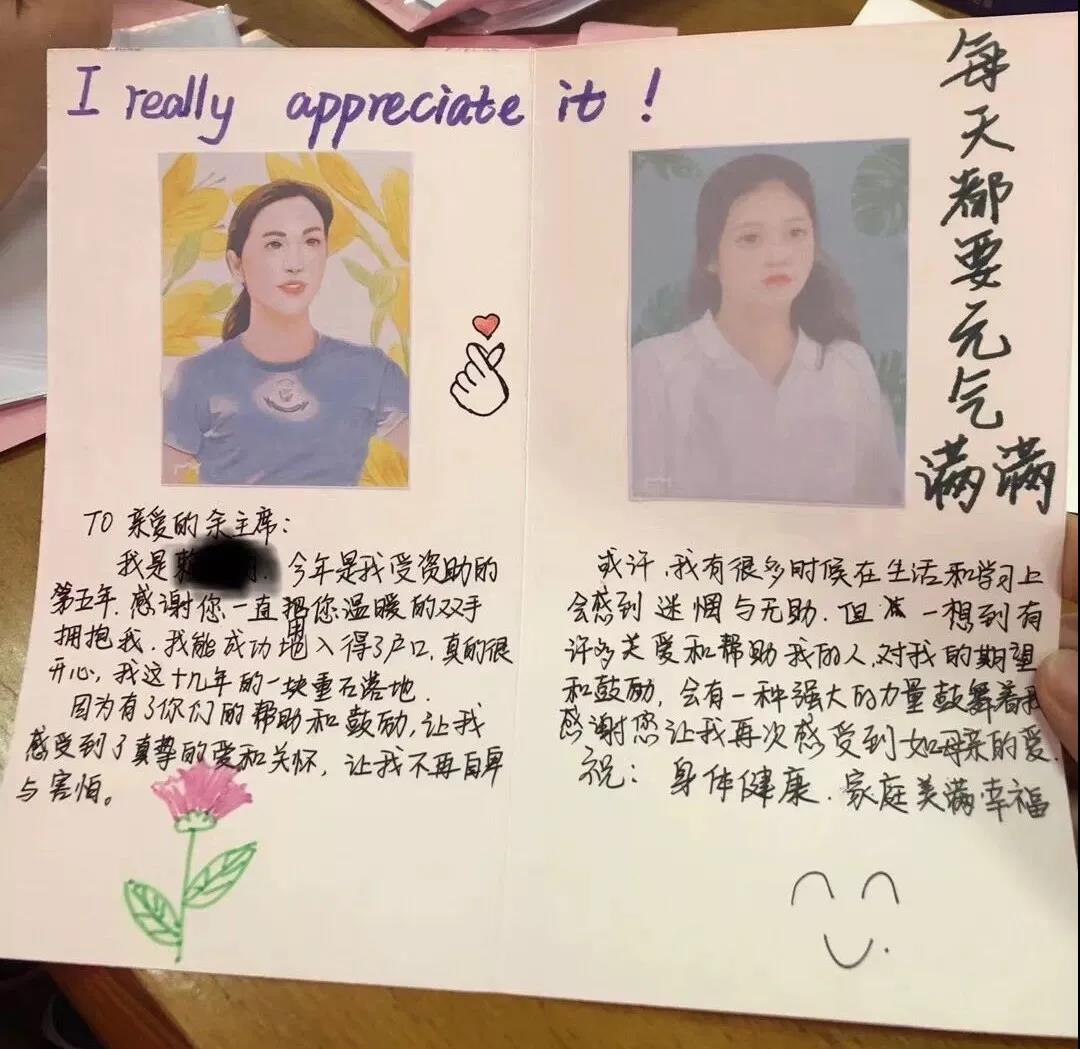 I really appreciate it !
每天都要元气满满
TO 亲爱的余主席：
我是 今年是我受资助的
第五年.感谢您一直把您温暖的双手
拥抱我.我能成功地入得了户口,真的很
开心,我这十几年的一块重石落地.
因为有了你们的帮助和鼓励,让我
感受到了真挚的爱和关怀,让我不再自卑
与害怕。
或许,我有很多时候在生活和学习上
会感到迷惘与无助.但 一想到有
许多关爱和帮助我的人,对我的期望
和鼓励,会有一种强大的力量鼓舞着我
感谢您让我再次感受到如母亲的爱.
祝：身体健康.家庭美满幸福